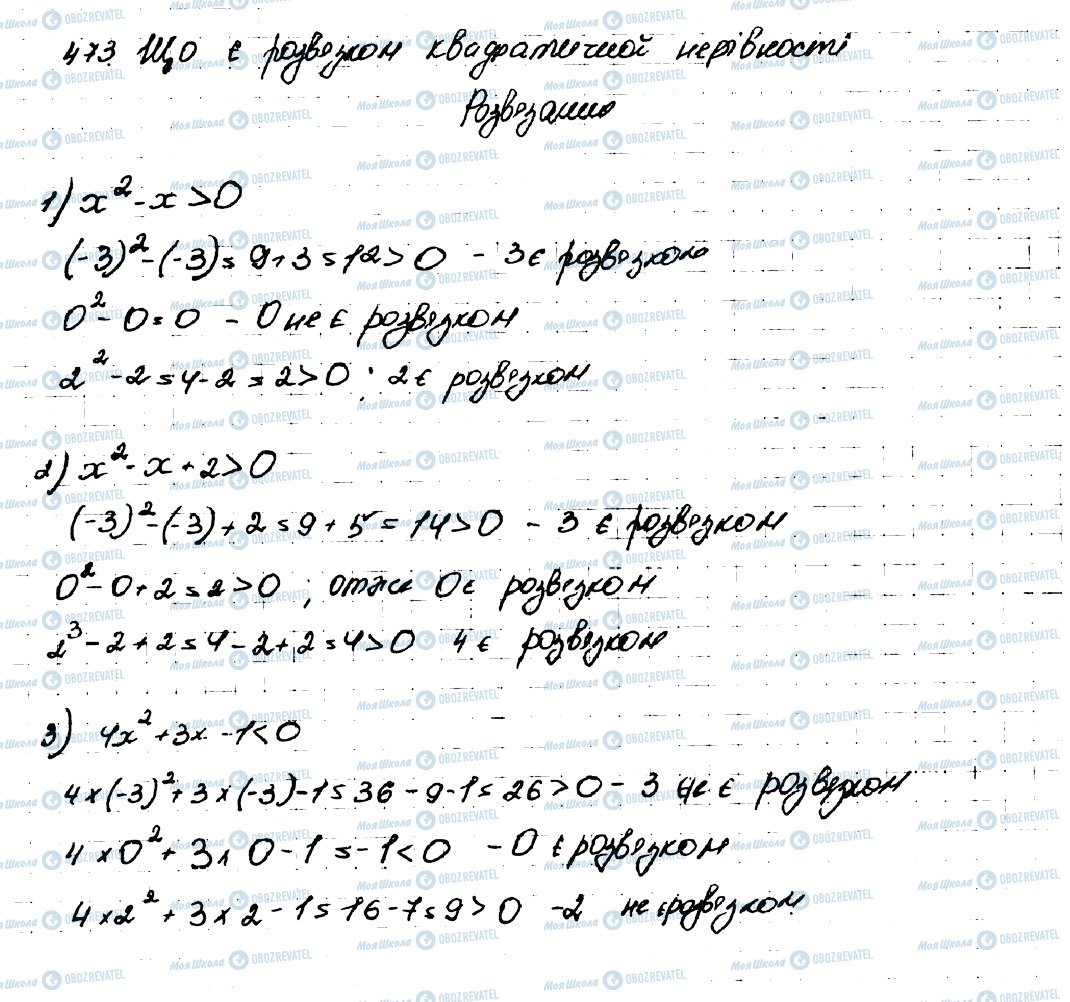 473 Що є розвязком квадратичной нерівності
Розвязання
1) x² - x > 0
(-3)² - (-3) = 9 + 3 = 12 > 0 - 3 є розвязком
0² - 0 = 0 - 0 не є розвязком
2² - 2 = 4 - 2 = 2 > 0 ; 2 є розвязком
2) x² - x + 2 > 0
(-3)² - (-3) + 2 = 9 + 5 = 14 > 0 - 3 є розвязком
0² - 0 + 2 = 2 > 0 ; отже 0 є розвязком
2³ - 2 + 2 = 4 - 2 + 2 = 4 > 0 4 є розвязком
3) 4x² + 3x - 1 < 0
4 × (-3)² + 3 × (-3) - 1 = 36 - 9 - 1 = 26 > 0 - 3 не є розвязком
4 × 0² + 3 × 0 - 1 = -1 < 0 - 0 є розвязком
4 × 2² + 3 × 2 - 1 = 16 - 7 = 9 > 0 - 2 не є розвязком
МояШкола OBOZREVATEL